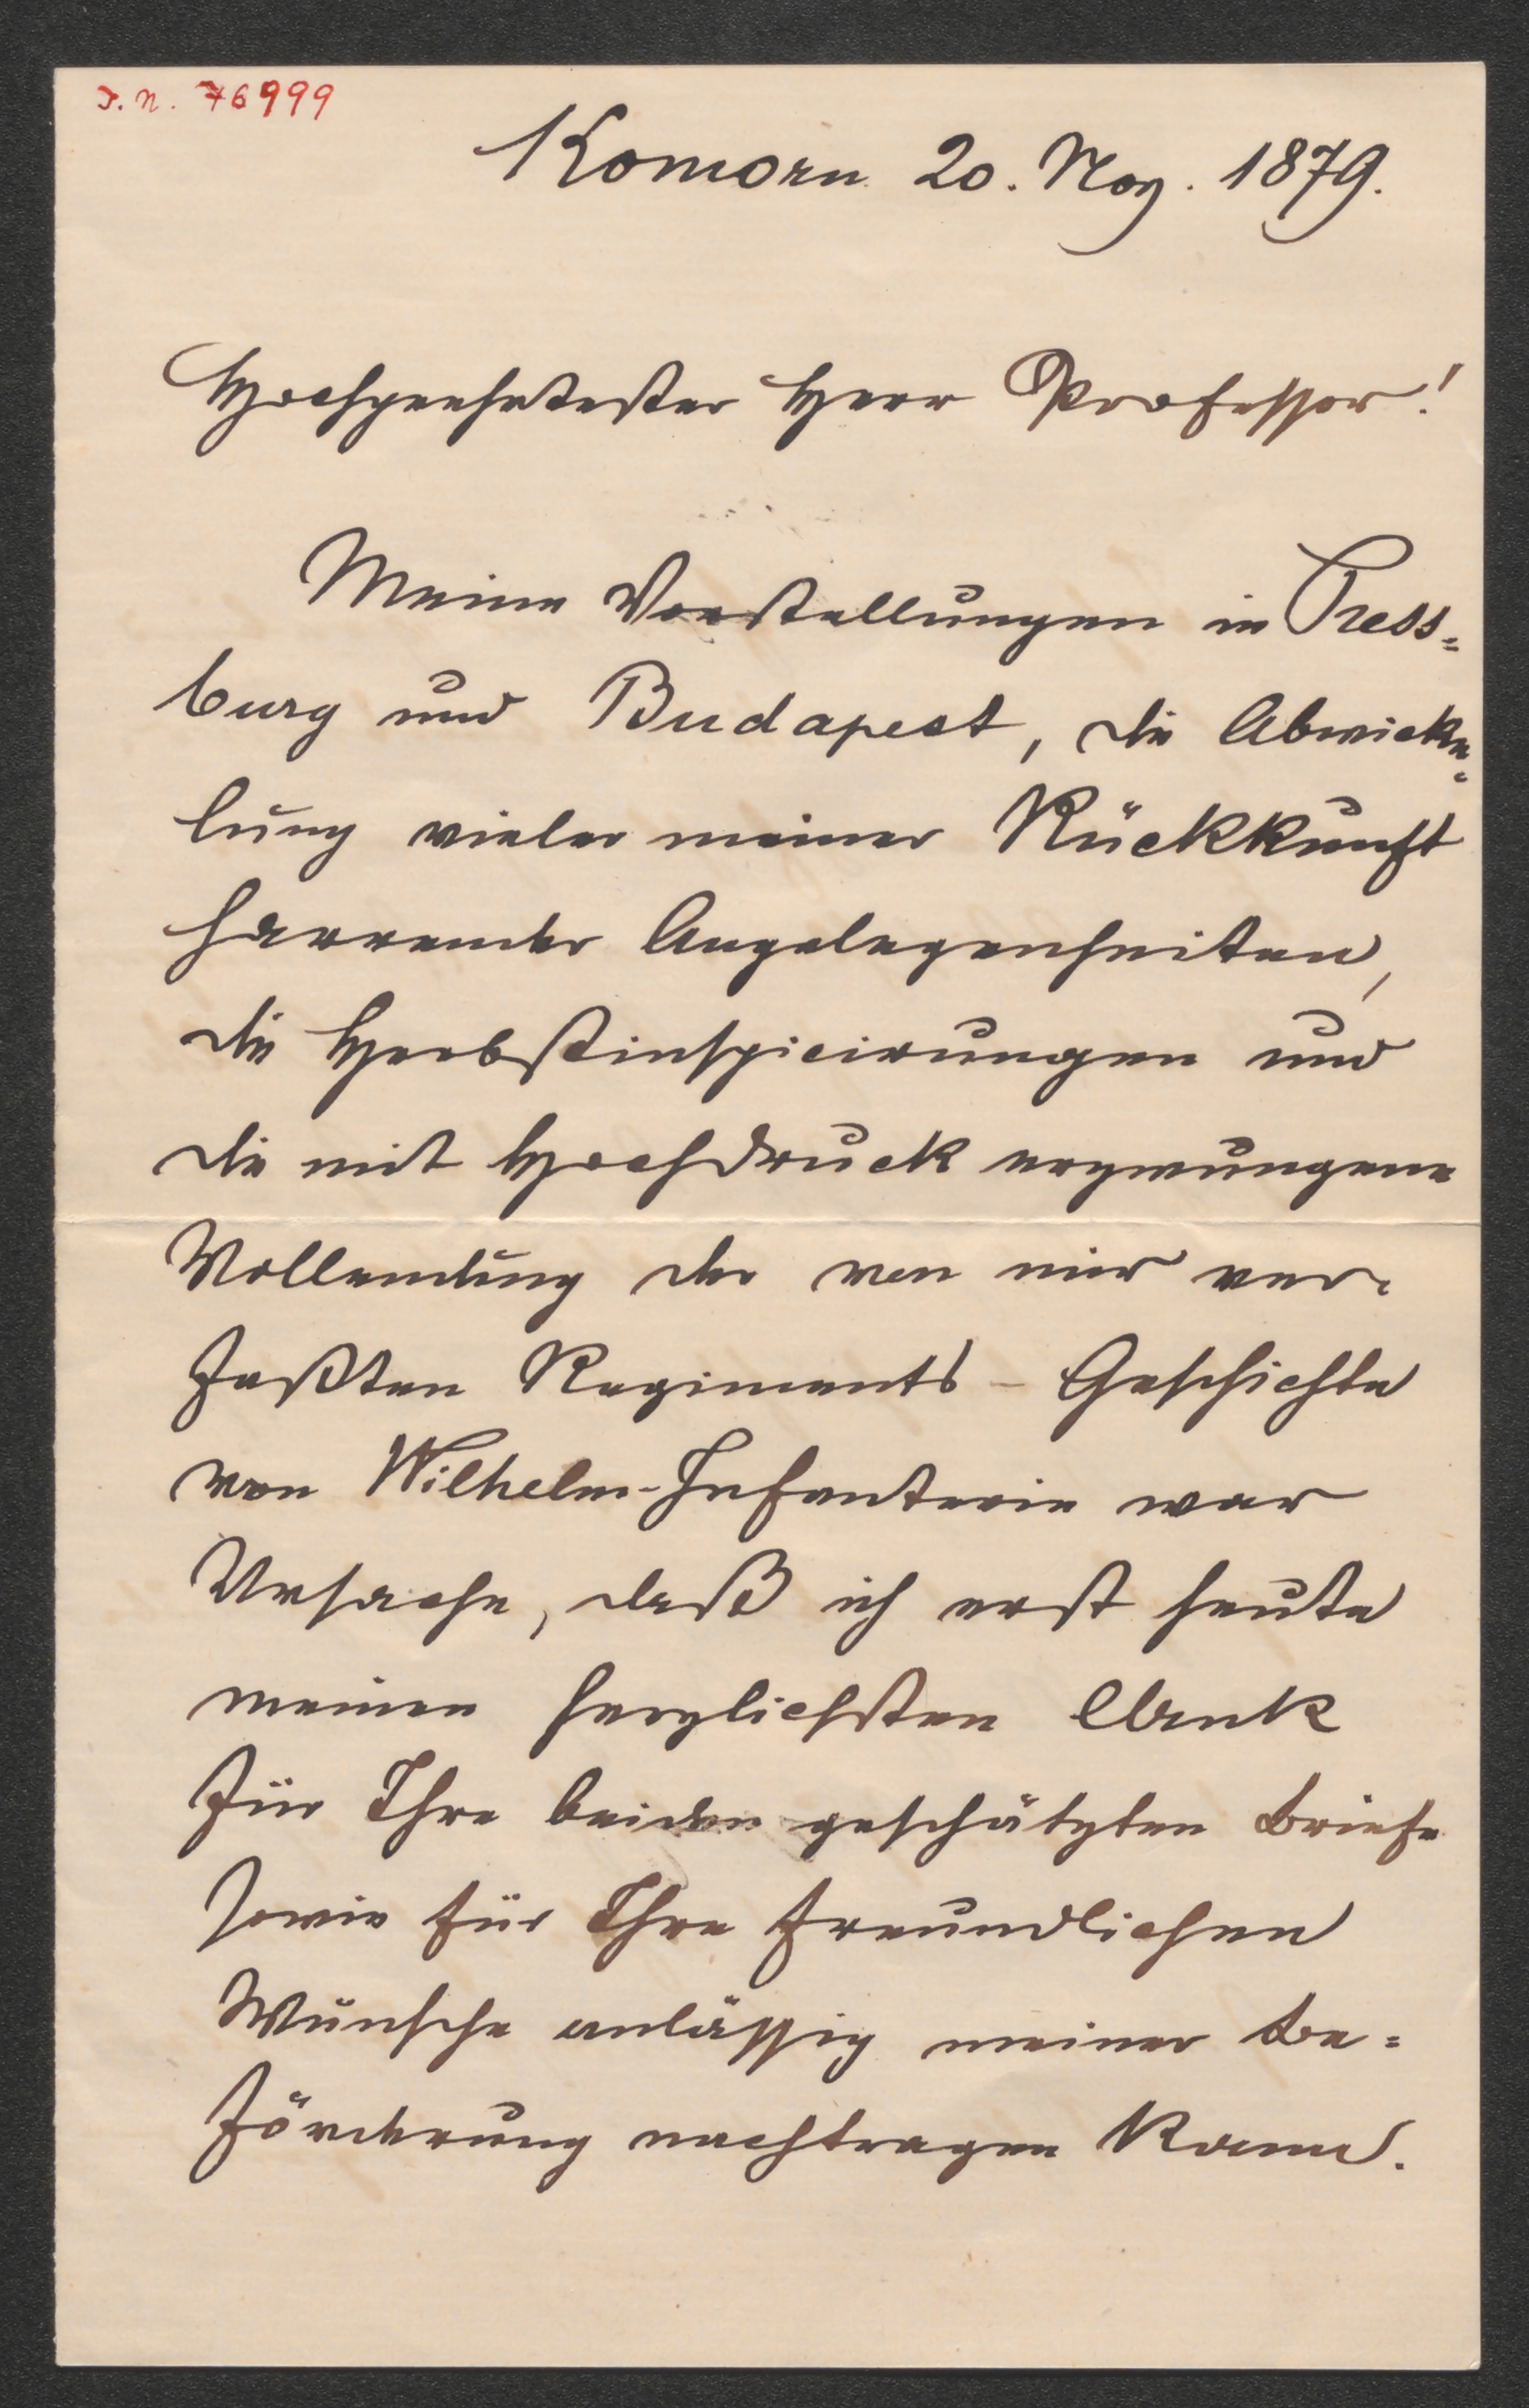 I. N. 76999
Komorn 20. Nov. 1879.
Hochgeehrtester Herr Professor!
Meine Vorstellungen in Press=
burg und Budapest, die Abwicke=
lung vieler meiner Rückkunft
harrender Angelegenheiten,
die Herbstinspicirungen und
die mit Hochdruck erzwungene
Vollendung der von mir ver=
faßten Regiments-Geschichte
von Wilhelm-Infanterie war
Ursache, daß ich erst heute
meinen herzlichsten Dank
für Ihre beiden geschätzten Briefe
sowie für Ihre freundlichen
Wünsche anlässig meiner Be=
förderung nachtragen kann.